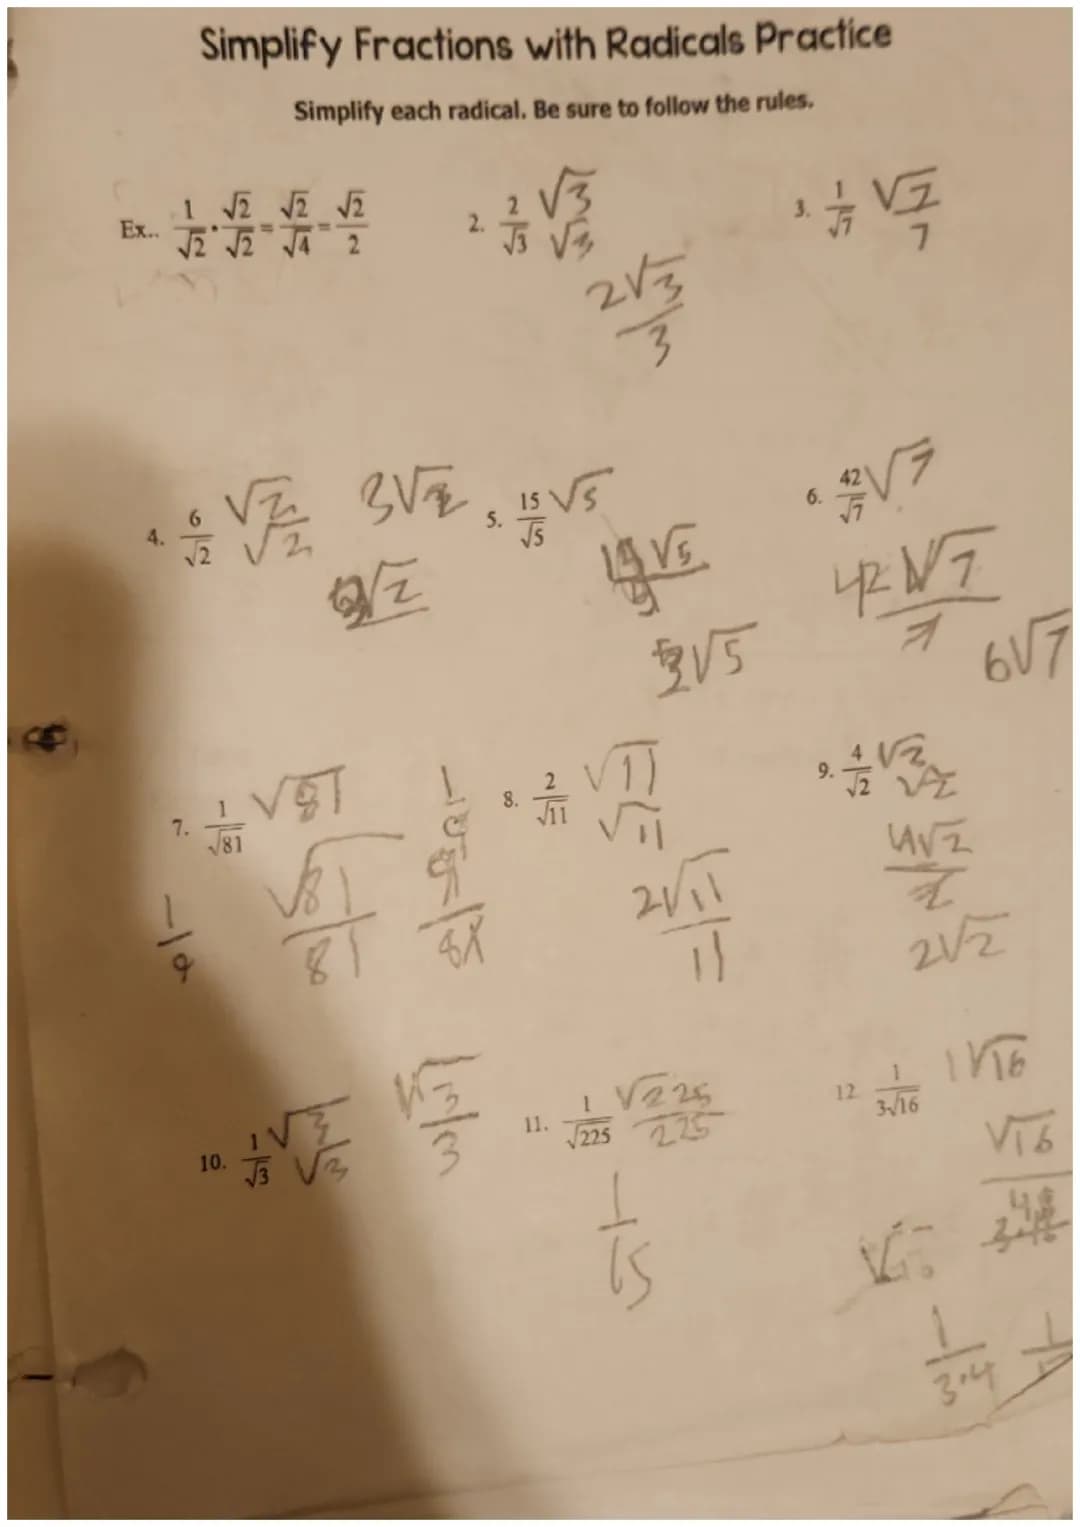 Simplify Fractions with Radicals Practice
Simplify each radical. Be sure to follow the rules.
Ex.. 1/√2 · √2/√2 = √2/√4 = √2/2
2. 2/√3 √3/√3
2√3/3
3. 1/√7 √7/7
4. 6/√2 √2/√2 3√2
√2
5. 15/√5 √5
√5
3√5
6. 42/√7 √7
42√7/7
6√7
7. 1/√81 √81
√81/81
9/81
1/9
1/9
8. 2/√11 √11/√11
2√11/11
9. 4/√2 √2/√2
4√2/2
2√2
10. 1/√3 √3/√3
√3/3
11. 1/√225 √225/225
1/15
12 1/3√16 1√16
√16
1/3·4